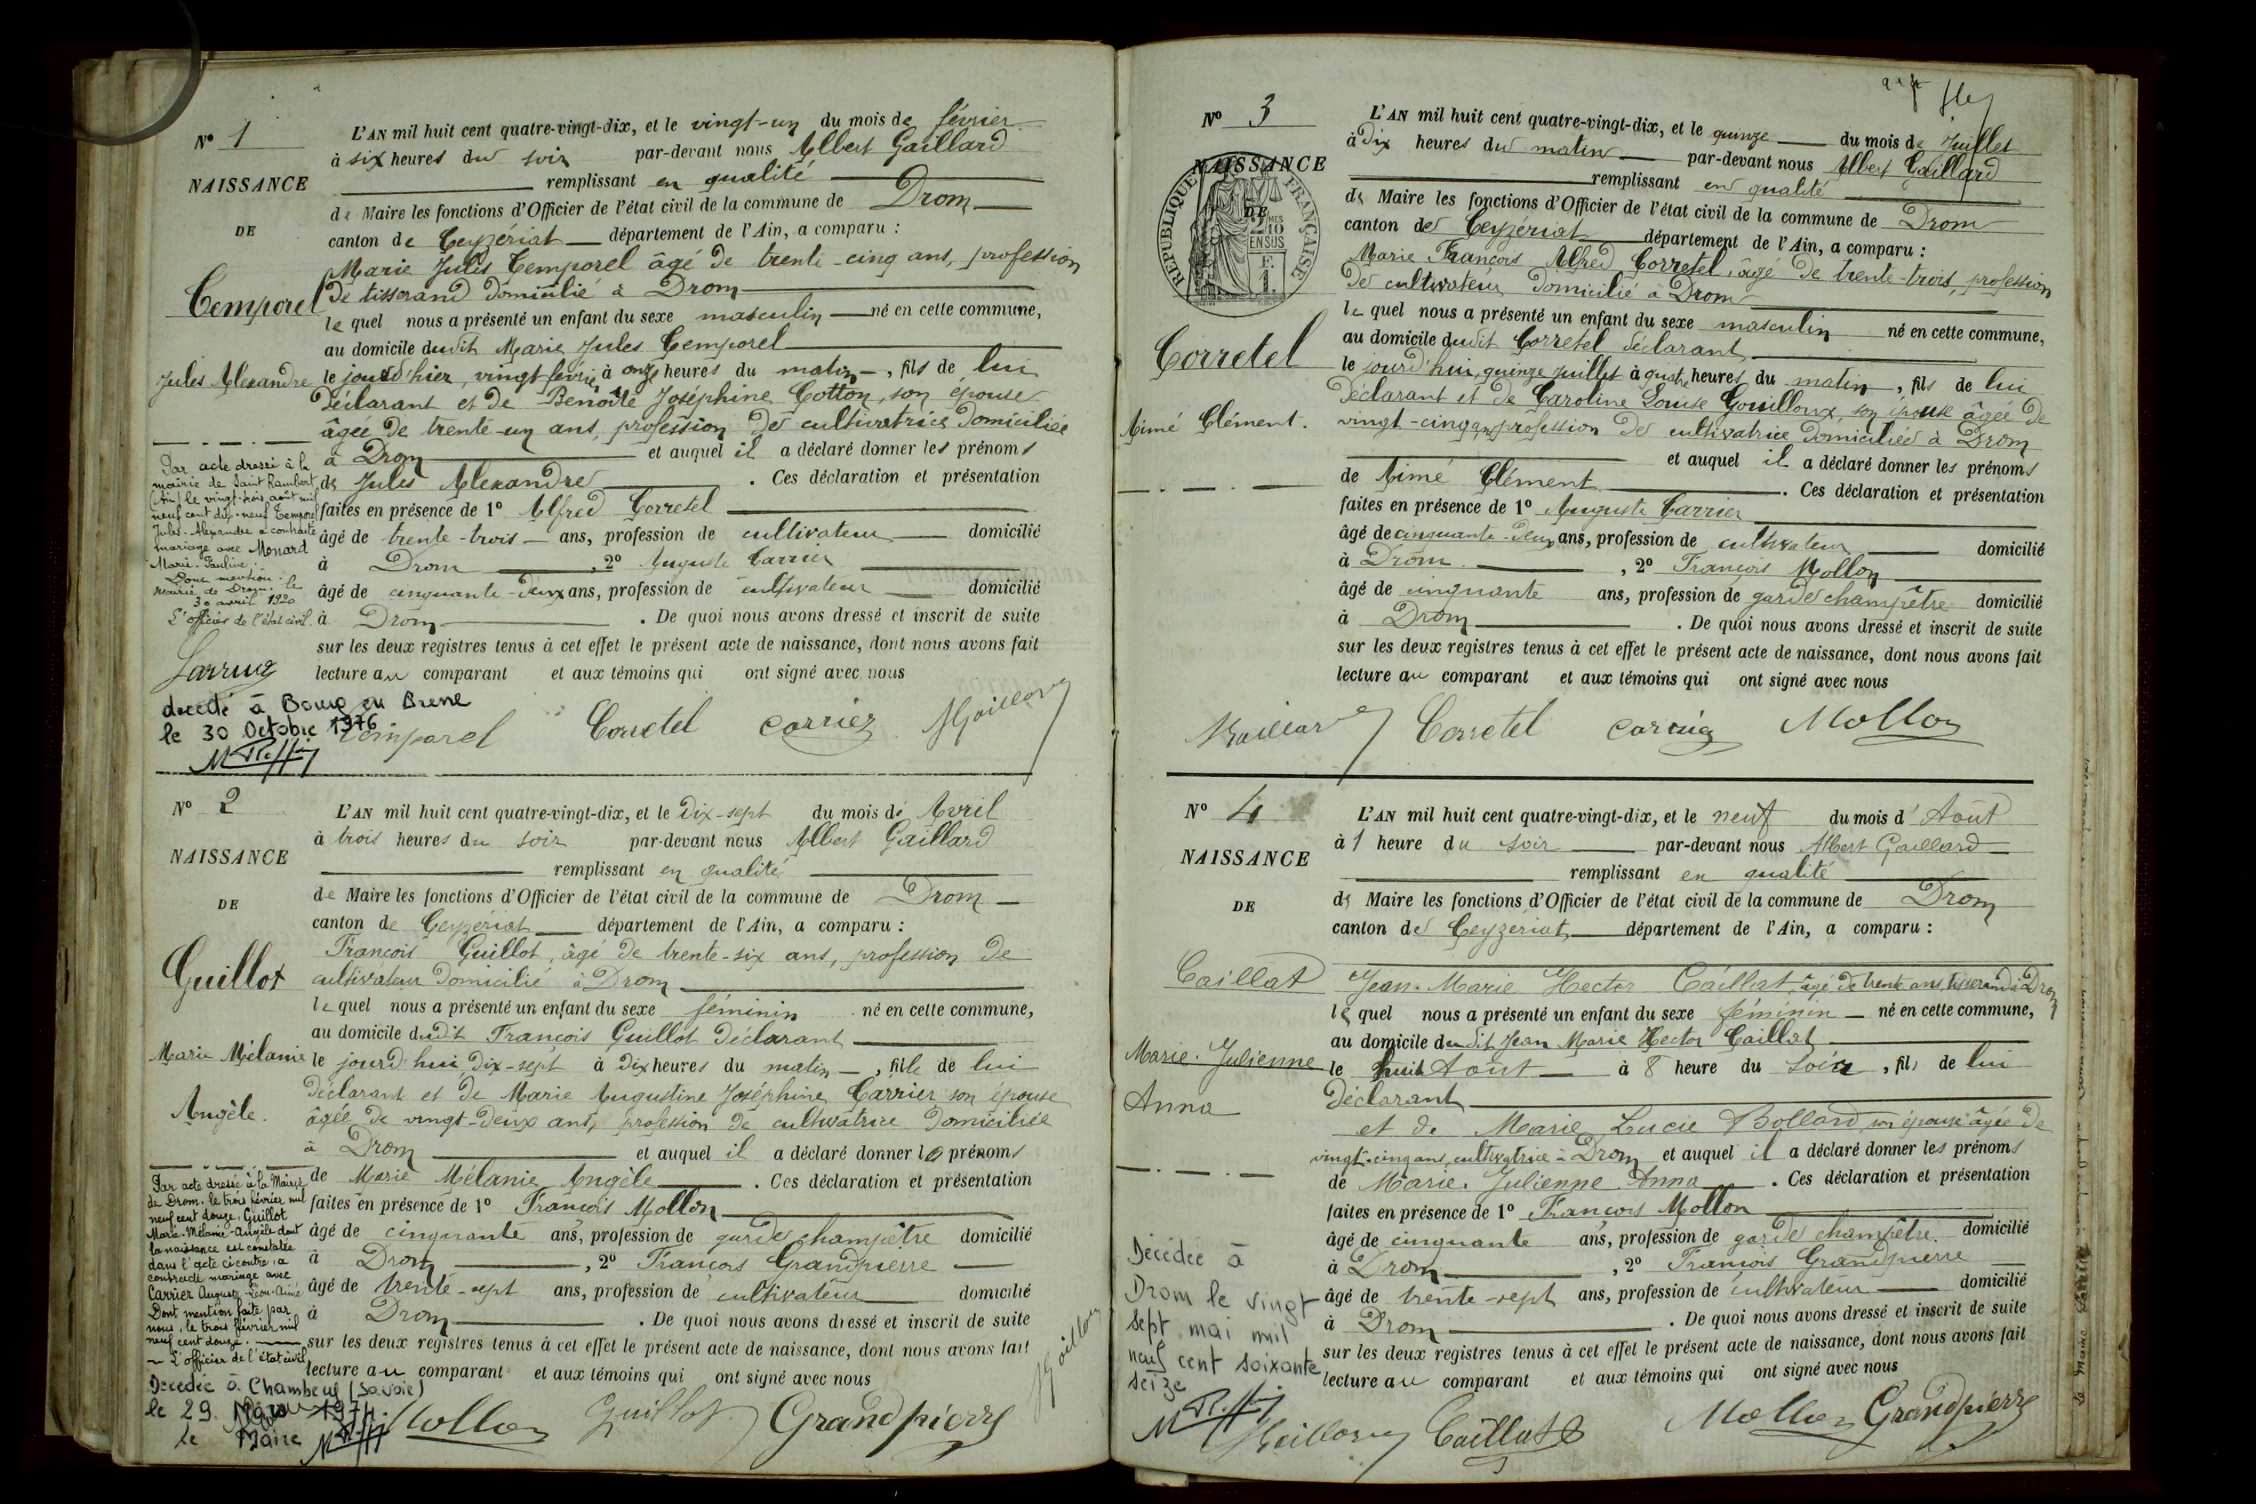 N° 1
NAISSANCE
DE
Temporel
Jules Alexandre
L'AN mil huit cent quatre-vingt-dix, et le vingt-un du mois de février
à six heures du soir par-devant nous Albert Gaillard
remplissant en qualité
de Maire les fonctions d'Officier de l'état civil de la commune de Drom
canton de Ceyzériat département de l'Ain, a comparu :
Marie Jules Temporel âgé de trente-cinq ans, profession
de tisserand domicilié à Drom
lequel nous a présenté un enfant du sexe masculin né en cette commune,
au domicile dudit Marie Jules Temporel
le jour d'hier, vingt février à onze heures du matin, fils de lui
déclarant et de Benoîte Joséphine Cotton, son épouse
âgée de trente-un ans, profession de cultivatrice domiciliée
à Drom et auquel il a déclaré donner les prénoms
de Jules Alexandre. Ces déclaration et présentation
faites en présence de 1° Alfred Corretel
âgé de trente-trois ans, profession de cultivateur domicilié
à Drom, 2° Auguste Carrier
âgé de cinquante-deux ans, profession de cultivateur domicilié
à Drom. De quoi nous avons dressé et inscrit de suite
sur les deux registres tenus à cet effet le présent acte de naissance, dont nous avons fait
lecture au comparant et aux témoins qui ont signé avec nous
Temporel Corretel Carrier AGaillard
Par acte dressé à la
mairie de Saint Rambert
(Ain) le vingt-trois août mil
neuf cent dix-neuf Temporel
Jules-Alexandre a contracté
mariage avec Monard
Marie-Pauline.
Pour mention.
Mairie de Drom. le
30 avril 1920
L'officier de l'état civil.
décédé à Bourg en Bresse
le 30 Octobre 1976
N° 2
NAISSANCE
DE
Guillot
Marie Mélanie
Angèle.
L'AN mil huit cent quatre-vingt-dix, et le dix-sept du mois de Avril
à trois heures du soir par-devant nous Albert Gaillard
remplissant en qualité
de Maire les fonctions d'Officier de l'état civil de la commune de Drom
canton de Ceyzériat département de l'Ain, a comparu :
François Guillot, âgé de trente-six ans, profession de
cultivateur domicilié à Drom
lequel nous a présenté un enfant du sexe féminin né en cette commune,
au domicile dudit François Guillot déclarant
le jourd'hui dix-sept à dix heures du matin, fille de lui
déclarant et de Marie Augustine Joséphine Carrier son épouse
âgée de vingt-deux ans, profession de cultivatrice domiciliée
à Drom et auquel il a déclaré donner les prénoms
de Marie Mélanie Angèle. Ces déclaration et présentation
faites en présence de 1° François Mollon
âgé de cinquante ans, profession de garde champêtre domicilié
à Drom, 2° François Grandpierre
âgé de trente-sept ans, profession de cultivateur domicilié
à Drom. De quoi nous avons dressé et inscrit de suite
sur les deux registres tenus à cet effet le présent acte de naissance, dont nous avons fait
lecture au comparant et aux témoins qui ont signé avec nous
Mollon Guillot Grandpierre AGaillard
Par acte dressé à la Mairie
de Drom, le trois février mil
neuf cent douze, Guillot
Marie-Mélanie-Angèle dont
la naissance est constatée
dans l'acte ci contre, a
contracté mariage avec
Carrier Auguste-Léon-Aimé
Dont mention faite par
nous, le trois février mil
neuf cent douze.
L'officier de l'état civil
Décédée à (Savoie)
le 29 Mars 1974.
le Maire
N° 3
NAISSANCE
DE
REPUBLIQUE FRANÇAISE
2/10 EN SUS
Corretel
Aimé Clément.
L'AN mil huit cent quatre-vingt-dix, et le quinze du mois de Juillet
à dix heures du matin par-devant nous Albert Gaillard
remplissant en qualité
de Maire les fonctions d'Officier de l'état civil de la commune de Drom
canton de Ceyzériat département de l'Ain, a comparu :
Marie François Alfred Corretel, âgé de trente-trois, profession
de cultivateur domicilié à Drom
lequel nous a présenté un enfant du sexe masculin né en cette commune,
au domicile dudit Corretel déclarant
le jourd'hui, quinze juillet à quatre heures du matin, fils de lui
déclarant et de Caroline Louise Gouilloux, son épouse âgée de
vingt-cinq ans profession de cultivatrice domiciliée à Drom
et auquel il a déclaré donner les prénoms
de Aimé Clément. Ces déclaration et présentation
faites en présence de 1° Auguste Carrier
âgé de cinquante-deux ans, profession de cultivateur domicilié
à Drom, 2° François Mollon
âgé de cinquante ans, profession de garde champêtre domicilié
à Drom. De quoi nous avons dressé et inscrit de suite
sur les deux registres tenus à cet effet le présent acte de naissance, dont nous avons fait
lecture au comparant et aux témoins qui ont signé avec nous
AGaillard Corretel Carrier Mollon
N° 4
NAISSANCE
DE
Caillat
Marie. Julienne
Anna
L'AN mil huit cent quatre-vingt-dix, et le neuf du mois d'Août
à 1 heure du soir par-devant nous Albert Gaillard
remplissant en qualité
de Maire les fonctions d'Officier de l'état civil de la commune de Drom
canton de Ceyzériat, département de l'Ain, a comparu :
Jean-Marie Hector Caillat, âgé de trente ans, tisserand à Drom
lequel nous a présenté un enfant du sexe féminin né en cette commune,
au domicile dudit Jean Marie Hector Caillat
le huit Août à 8 heure du soir, fils de lui
déclarant
et de Marie Lucie Bollard son épouse âgée de
vingt-cinq ans, cultivatrice à Drom et auquel il a déclaré donner les prénoms
de Marie. Julienne. Anna. Ces déclaration et présentation
faites en présence de 1° François Mollon
âgé de cinquante ans, profession de garde champêtre. domicilié
à Drom, 2° François Grandpierre
âgé de trente-sept ans, profession de cultivateur domicilié
à Drom. De quoi nous avons dressé et inscrit de suite
sur les deux registres tenus à cet effet le présent acte de naissance, dont nous avons fait
lecture au comparant et aux témoins qui ont signé avec nous
AGaillard Caillat Mollon Grandpierre
Décédée à
Drom le vingt
sept mai mil
neuf cent soixante
seize